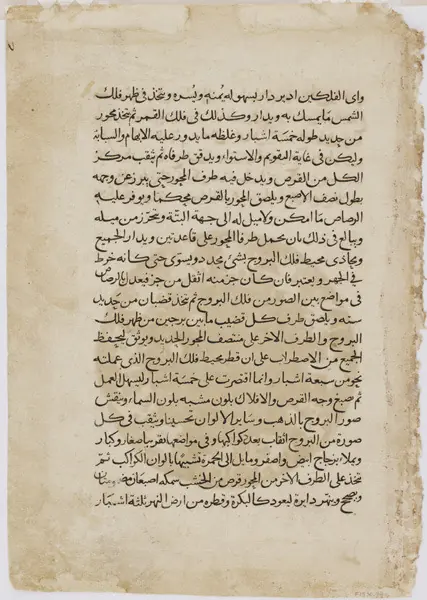 واى الفلكين ادير دار بسهوله يمنه ويسره ويتخذ فى ظهر فلك
الشمس مايمسك به ويدار وكذلك فى فلك القمر ثم يتخذ محور
من حديد طوله خمسة اشبار وغلظه مايدور عليه الابهام والسبابة
وليكن فى غاية التقويم والاستواء ويدقق طرفاه ثم يثقب مركز
الكل من القرص ويدخل فيه طرف المحور حتى يبرز عن وجهه
بطول نصف الاصبع ويلصق المحور بالقرص محكما ويوفر عليه
الرصاص ما امكن ولاميل له الى جهة البتة ويتحرز من ميله
ويبالغ فى ذلك بان يحمل طرفا المحور على قاعدتين ويدار الجميع
ويحاذى محيط فلك البروج بشئ محدد ويسوى حتى كانه خرط
فى الجهر ويعتبر فان كان جزء منه اثقل من جزء فيعدل بالرصاص
فى مواضع بين الصور من فلك البروج ثم يتخذ قضبان من حديد
سته ويلصق طرف كل قضيب مابين برجين من ظهر فلك
البروج والطرف الاخر على منتصف المحور الحديد ويوثق ليحفظ
الجميع من الاضطراب على ان قطر محيط فلك البروج الذى عملته
نحو من سبعة اشبار وانما اقتصرت على خمسة اشبار ليسهل العمل
ثم صبغ وجه القرص والافلاك بلون مشبه بلون السماء وينقش
صور البروج بالذهب وساير الالوان تحسينا ويثقب فى كل
صورة من البروج اثقاب بعدد كواكبها وفى مواضعها تقريبا صغار وكبار
ويملا بزجاج ابيض واصفر ومايل الى الحمرة تشبيها بالوان الكواكب ثم
يتخذ على الطرف الاخر من المحور قرص من الخشب سمكه اصبعان
ويصحح دايرة ليعود كالبكرة وقطره من ارض النهر ثلثة اشبار